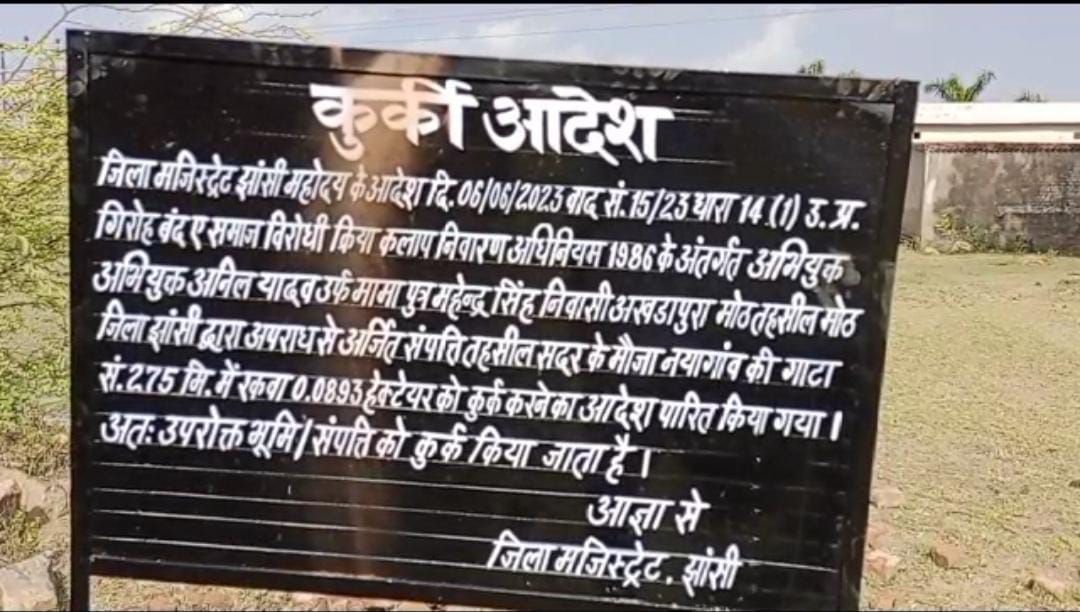 कुर्की आदेश
जिला मजिस्ट्रेट झांसी महोदय के आदेश दि. 06/06/2023 वाद सं. 15/23 धारा 14 (1) उ.प्र.
गिरोह बंद ए समाज विरोधी क्रिया कलाप निवारण अधिनियम 1986 के अंतर्गत अभियुक्त
अभियुक्त अनिल यादव उर्फ मामा पुत्र महेन्द्र सिंह निवासी अखडापुरा मोठ तहसील मोठ
जिला झांसी द्वारा अपराध से अर्जित संपत्ति तहसील सदर के मौजा नयागांव की गाटा
सं. 275 मि. में रकवा 0.0893 हेक्टेयर को कुर्क करने का आदेश पारित किया गया।
अतः उपरोक्त भूमि/संपति को कुर्क किया जाता है।
आज्ञा से
जिला मजिस्ट्रेट, झांसी